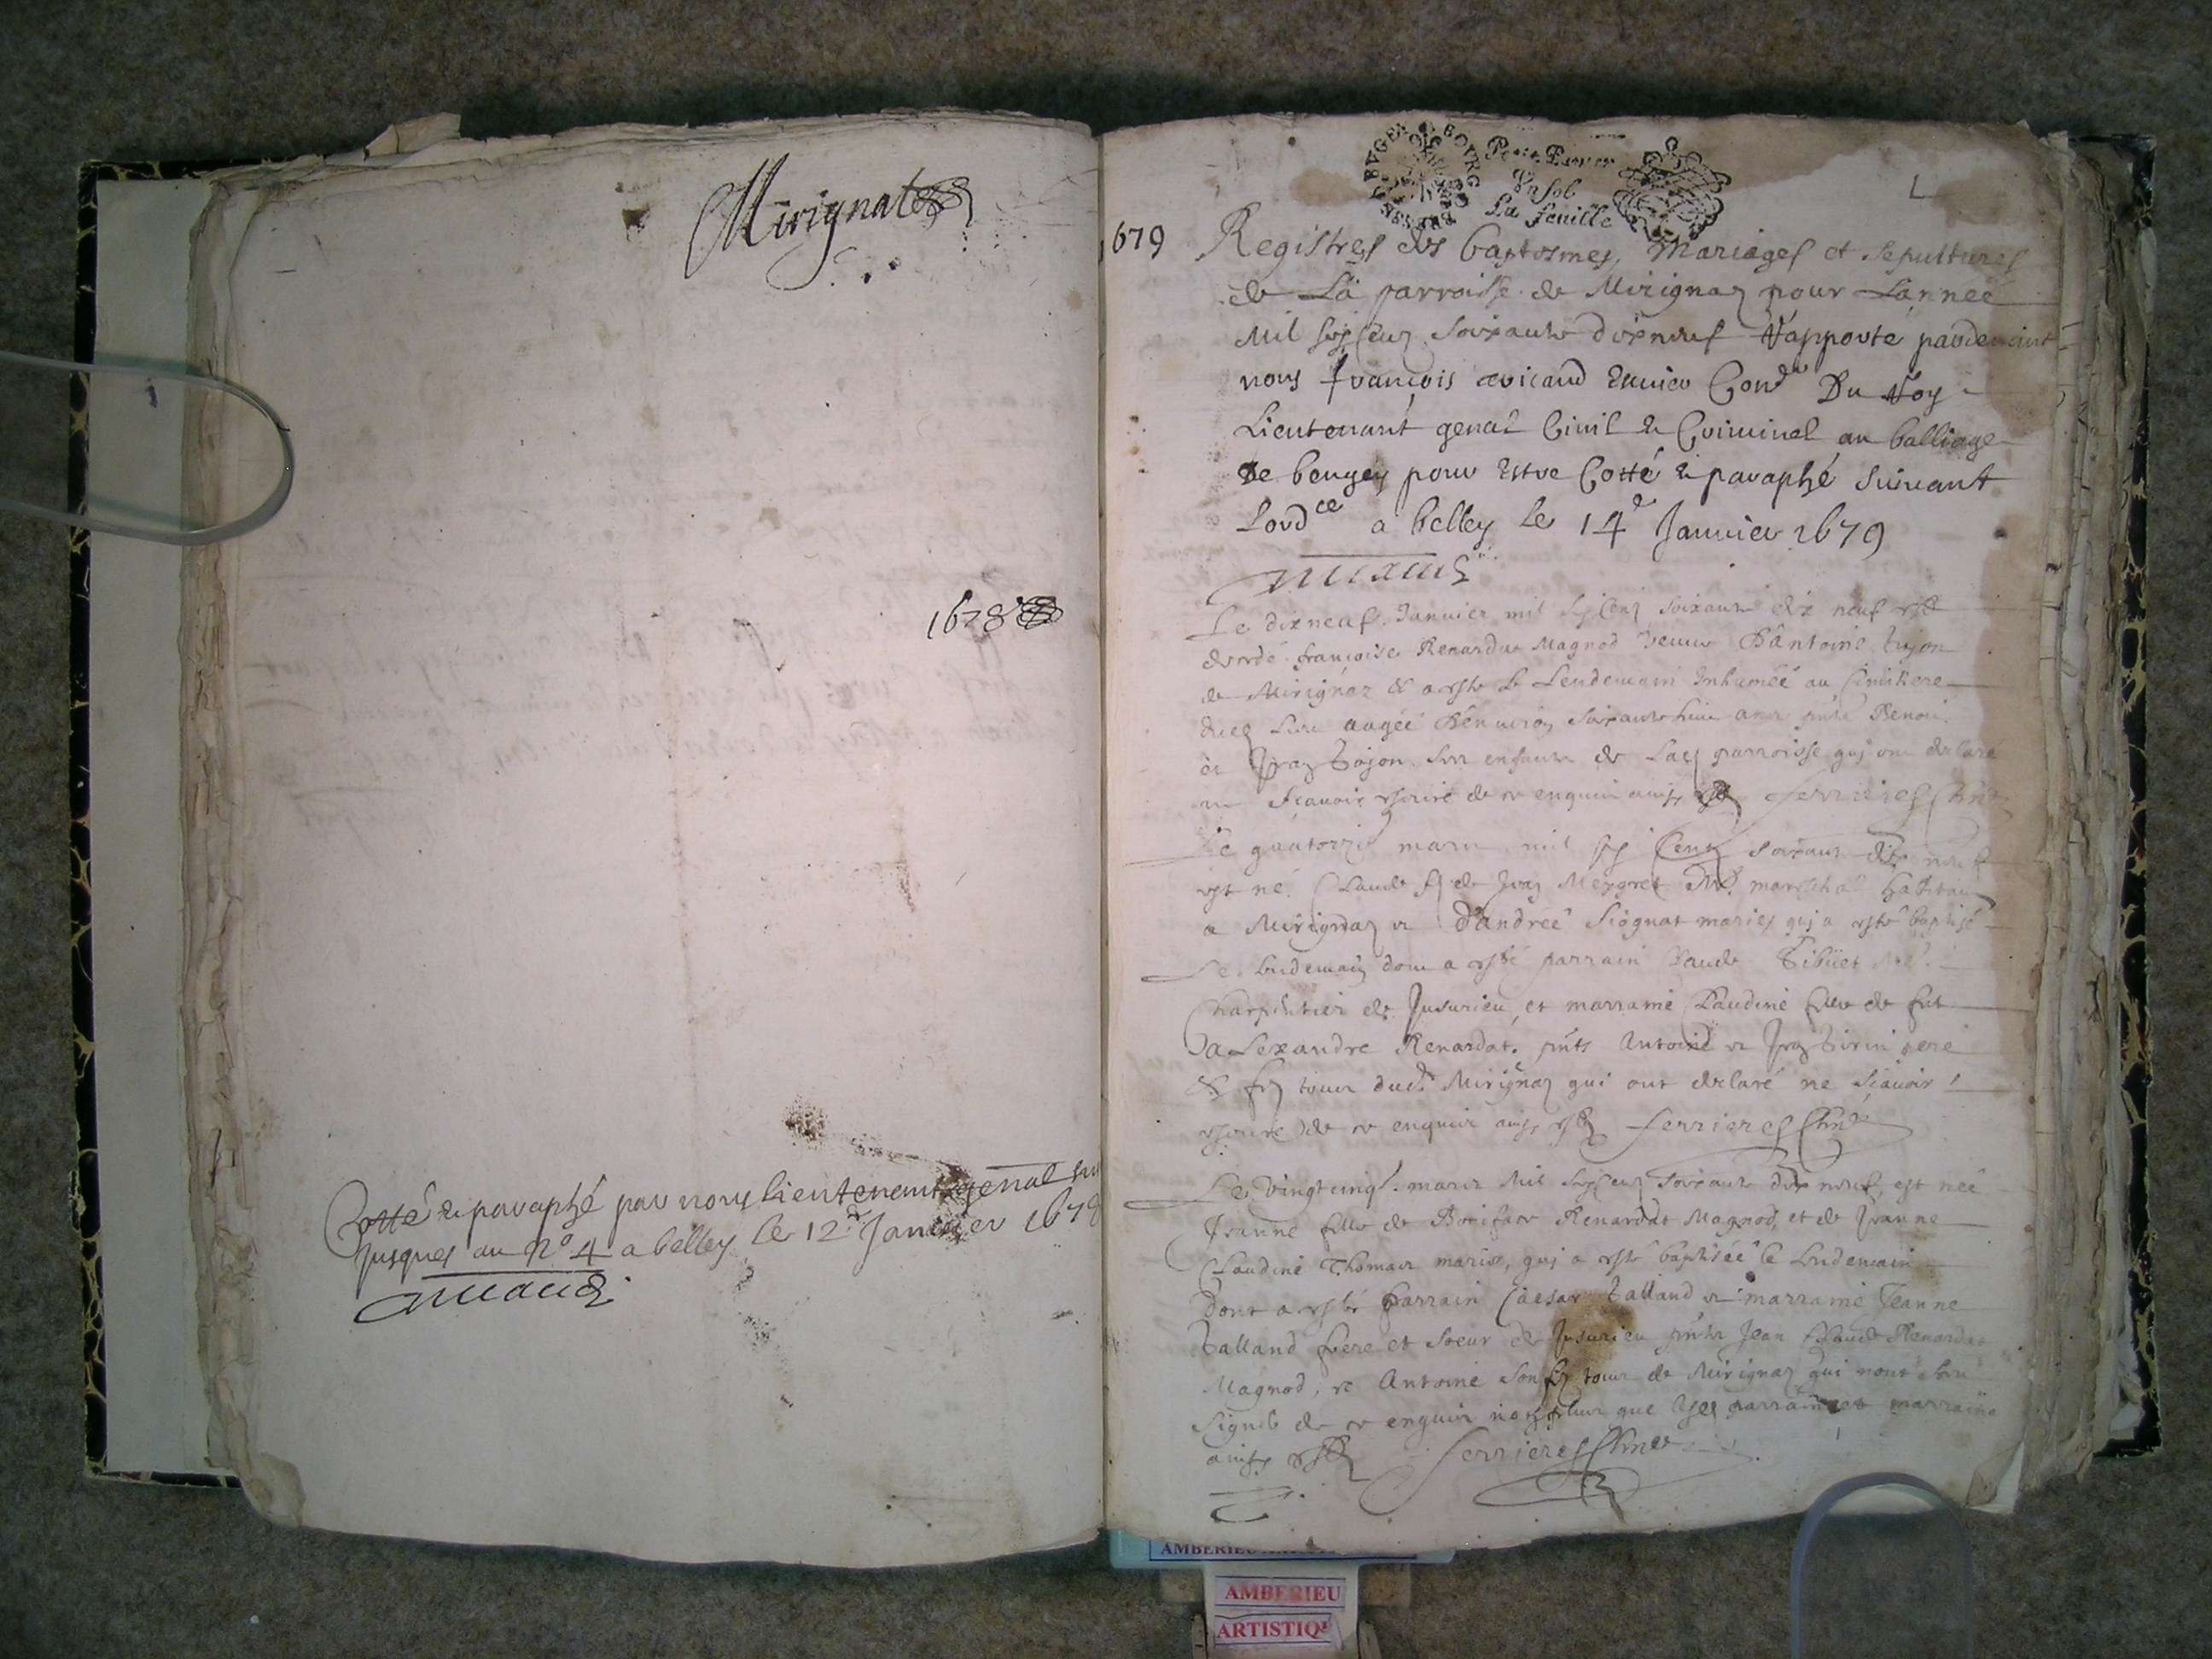 Mirignat
1678
Cotté & paraphé par nous lieutenant genal
jusques au n° 4 a belley le 12e Janvier 1678
BOURG
Petit Papier
Un sol
La feuille
1679
Registres des baptesmes, Mariages et sepultures
de La parroisse de Mirignaz pour Lannee
Mil six Cenz soixante dix neuf Rapporté pardevant
nous françois Escuier Conr Du Roy
Lieutenant genal Civil & Criminel au balliage
de beugey pour Estre Cotté & paraphé suivant
Lordce a belley le 14e Janvier 1679
Le dix neuf Janvier mil six Cenz soixante dix neuf est
decedé françoise Renardat Magnod veuve d'Antoine
de Mirignaz & a esté le Lendemain Inhumée au Cimitiere
dud. Lieu aagée d'environ soixante huit ans
et Jean ses enfants de Lad. parroisse qui ont declaré
ne sçavoir escrire de ce enquis ainsy est Ferrieres
Le quatorze mars mil six Cenz soixante dix neuf
est né Claude fs de Jean Me. mareschal habitant
a Mirignaz et d'andrée mariez qui a esté baptisé
Le Lendemain dont a esté parrain Claude Tibüet Me.
Charpentier de Jusurieu, et marraine Claudine fille de fut
alexandre Renardat. pnts Antoine et Jean pere
& fs tous dud. Mirignaz qui ont declaré ne sçavoir
escrire de ce enquis ainsy est Ferrieres
Le Vingt cinq. mars Mil six Cenz soixante dix neuf, est née
Jeanne fille de Boniface Renardat Magnod, et de Jeanne
Claudine Thomas mariez, qui a esté baptisée le Lendemain
Dont a esté parrain Caesar Talland et marraine Jeanne
Talland frere et soeur de Jusurieu pnts Jean Claude Renardat
Magnod, et Antoine son fs tous de Mirignaz qui n'ont
signé de ce enquis non plus que lesd. parrain et marraine
ainsy est Ferrieres
AMBERIEU
ARTISTIQ